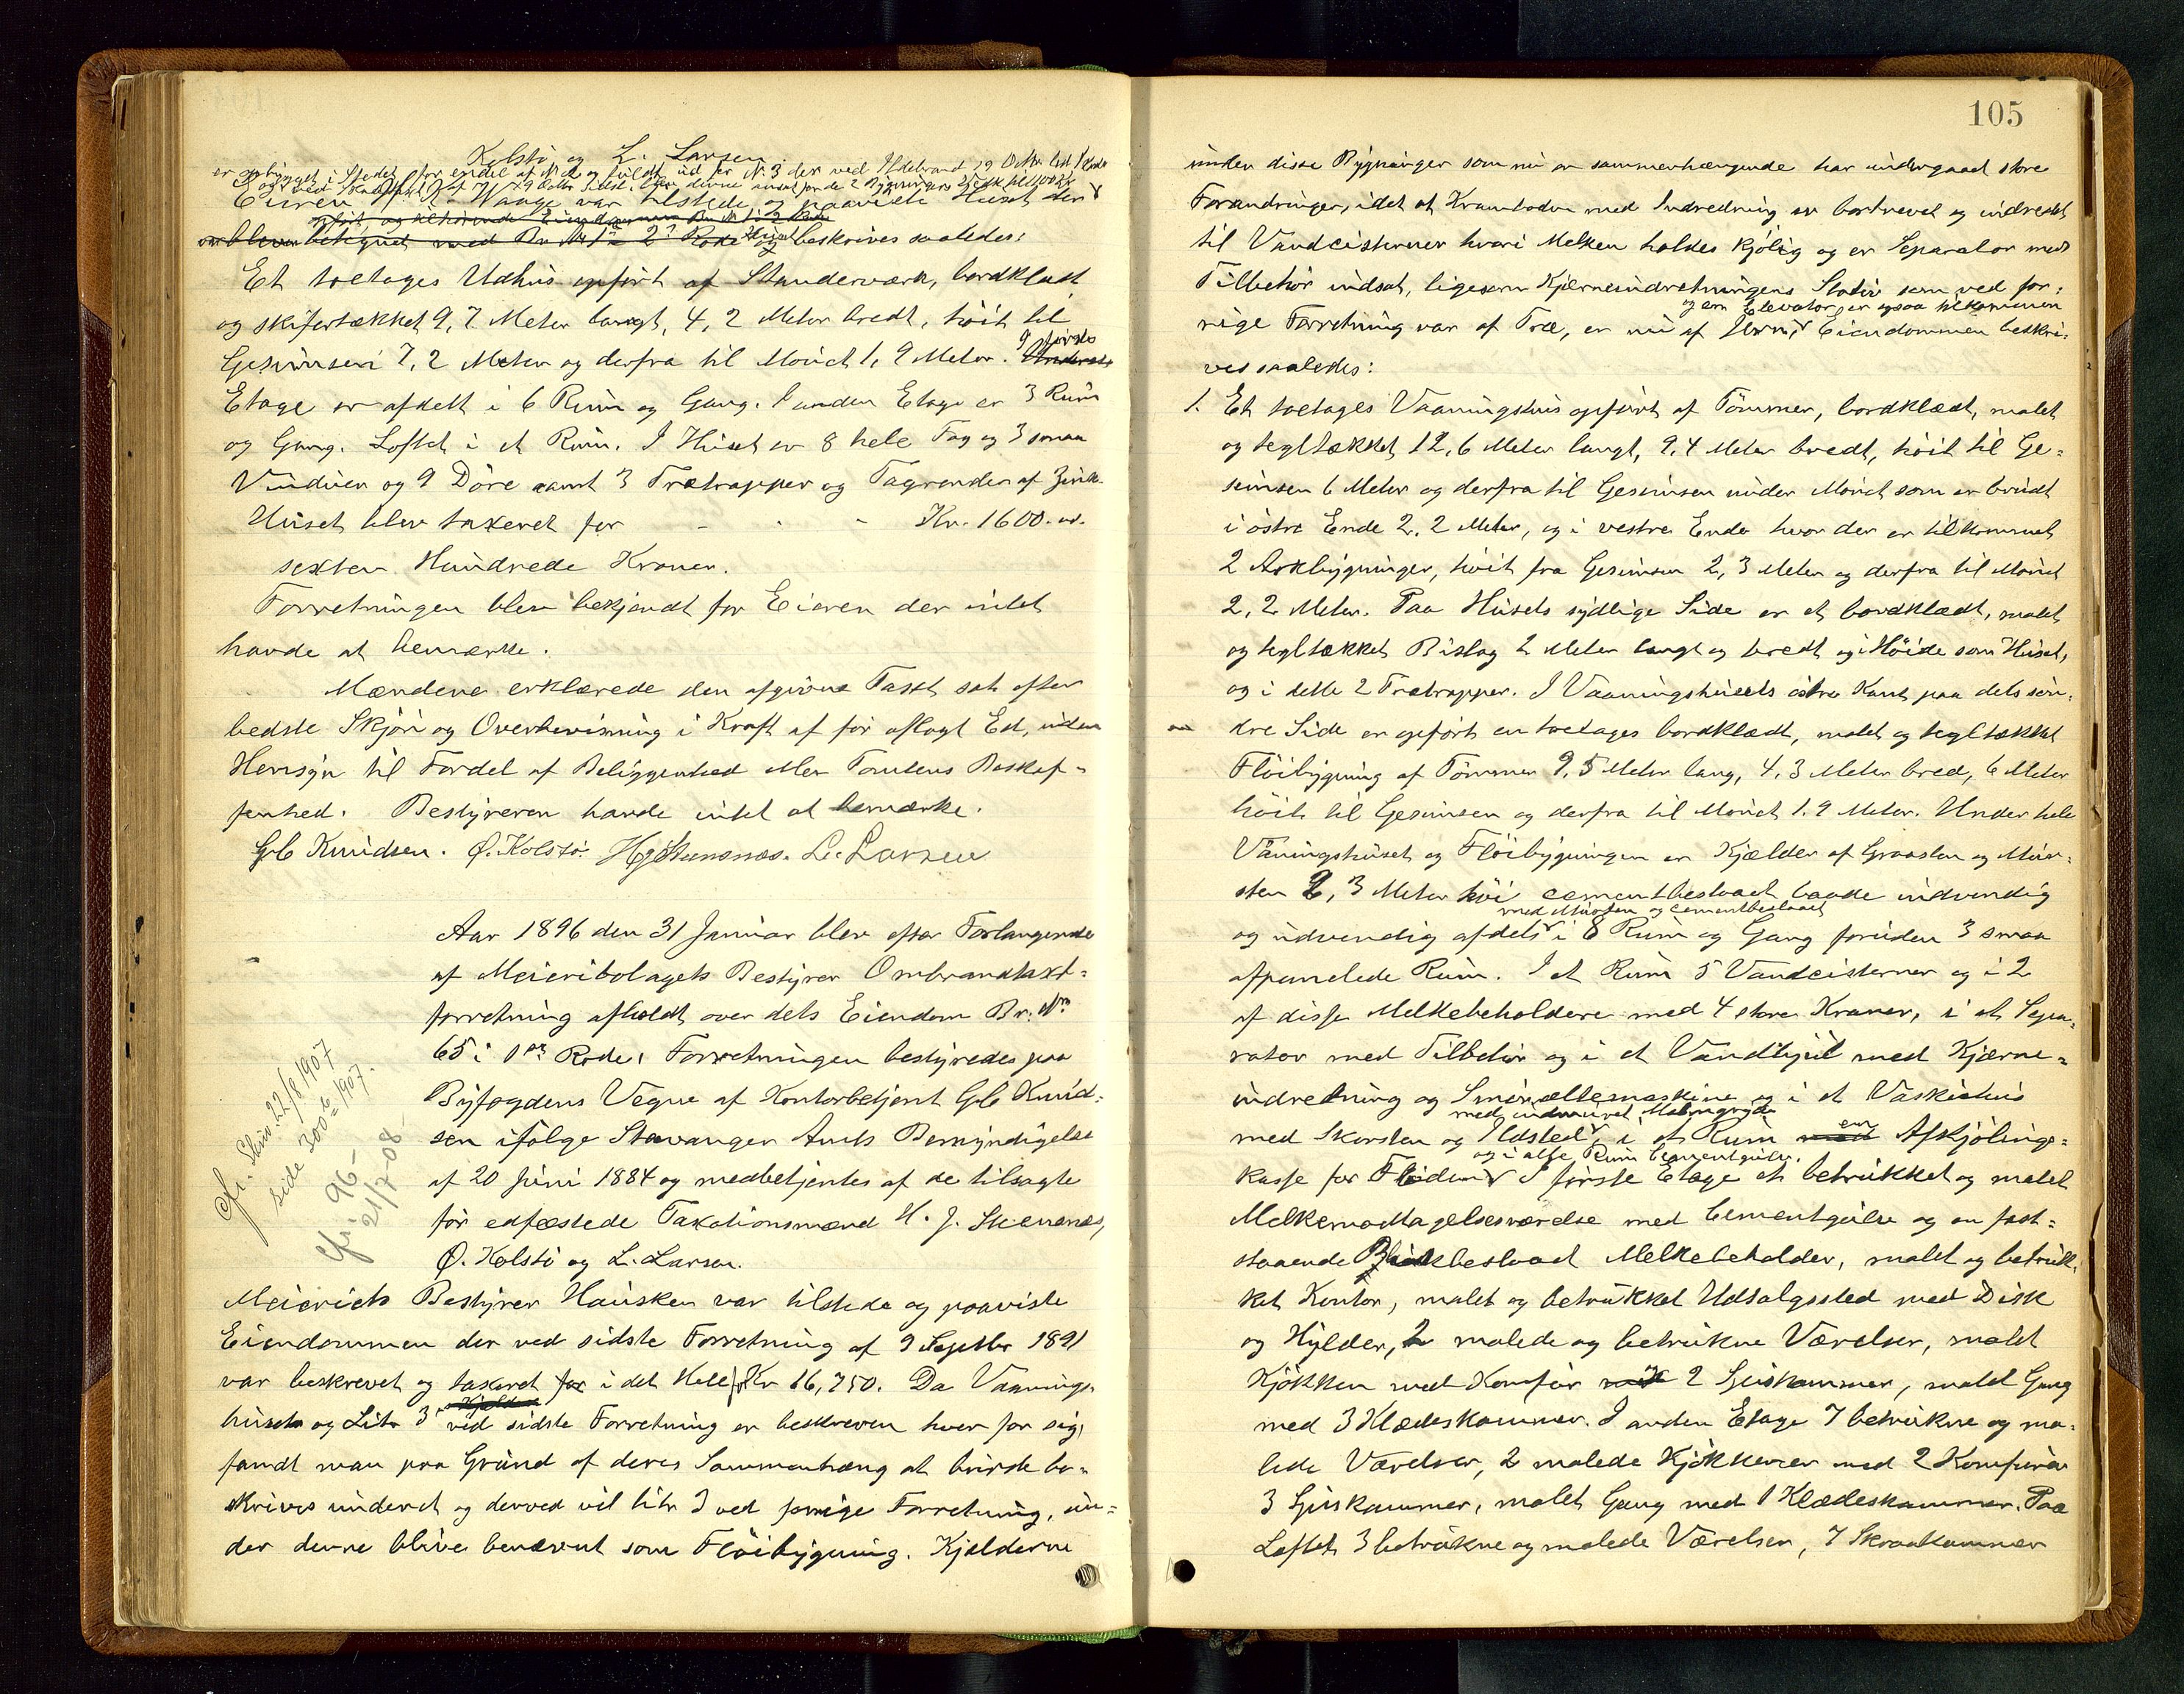 Kolstø og L. Larsen.
er opbygget i Stedet for endel af N. 2 og fuldt ud for N. 3 der ved Ildebrand 19 Oktbr
Eieren Waage var tilstede og paaviste Huset der
blev betegnet med Br. No 1 i 2 Rode og Huset beskrives saaledes:
Et toetages Udhus opført af Standerværk, bordklædt
og skifertækket 9,7 Meter langt, 4,2 Meter bredt, høit til
Gesimsen 7,2 Meter og derfra til Mønet 1,9 Meter. I første
Etage er afdelt i 6 Rum og Gang. I anden Etage er 3 Rum
og Gang. Loftet i et Rum. I Huset er 8 hele Fag og 3 smaa
Vinduer og 9 Døre samt 3 Trætrapper og Tagrender af Zink.
Huset blev taxeret for - - - Kr. 1600.
sexten Hundrede Kroner.
Forretningen blev bekjendt for Eieren der intet
havde at bemærke.
Mændene erklærede den afgivne Taxt sat efter
bedste Skjøn og Overbevisning i Kraft af før aflagt Ed, uden
Hensyn til Fordel af Beliggenhed eller Tomtens Beskaf-
fenhed. Bestyreren havde intet at bemærke.
Glb Knudsen. Ø. Kolstø. HJSteensnæs. L. Larsen
Aar 1896 den 31 Januar blev efter Forlangende
af Meieribolagets Bestyrer Ombrandtaxt-
forretning afholdt over dets Eiendom Br. No
65 i 1ste Rode. Forretningen bestyredes paa
Byfogdens Vegne af Kontorbetjent Glb Knud-
sen ifølge Stavanger Amts Bemyndigelse
af 20 Juni 1884 og medbetjentes af de tilsagte
før edfæstede Taxationsmænd H. J. Steensnæs,
Ø. Kolstø og L. Larsen.
cfr. Skjøn 22/8 1907
side 300 b/1907.
cfr 96-
21/7-08
Meieriets Bestyrer Hausken var tilstede og paaviste
Eiendommen der ved sidste Forretning af 9 Septbr 1891
var beskrevet og taxeret for i det Hele for Kr 16,750. Da Vaanings-
huset og Litr 3 Kjelder ved sidste Forretning er beskreven hver for sig,
fandt man paa Grund af deres Sammenhæng at burde be-
skrives underet og derved vil litr 3 ved forrige Forretning, un-
der denne blive benævnt som Fløibygning. Kjelderne
105
under disse Bygninger som nu er sammenhængende har undergaaet store
Forandringer, idet at Kramboden med Indredning er bortrevet og indredet
til Vandcisterner hvori Melken holdes kjølig og er Separator med
Tilbehør indsat, ligesom Kjærneindretningens Stativ som ved for-
og em Elevator er ogsaa tilkommen
rige Forretning var af Træ, er nu af Jern. Eiendommen beskri-
ves saaledes:
1. Et toetages Vaaningshus opført af Tømmer, bordklædt, malet
og tegltækket 12,6 Meter langt, 9,4 Meter bredt, høit til Ge-
simsen 6 Meter og derfra til Gesimsen under Mønet som er brudt
i østre Ende 2,2 Meter, og i vestre Ende hvor der er tilkommet
2 Arkbygninger, høit fra Gesimsen 2,3 Meter og derfra til Mønet
2,2 Meter. Paa Husets sydlige Side er et bordklædt, malet
og tegltækket Bislag 2 Meter langt og bredt og i Høide som Huset,
og i dette 2 Trætrapper. I Vaaningshusets østre Kant paa dets søn-
dre Side er opført en toetages bordklædt, malet og tegltækket
Fløibygning af Tømmer 9,5 Meter lang, 4,3 Meter bred, 6 Meter
høit til Gesimsen og derfra til Mønet 1.9 Meter. Under hele
Vaningshuset og Fløibygningen er Kjælder af Graasten og Mur-
sten 2,3 Meter høi cementbeslaaet baade indvendig
med Mursten og cementbeslaaet
og udvendig afdelt i 8 Rum og Gang foruden 3 smaa
afpanelede Rum. I et Rum 5 Vandcisterner og i 2
af disse Melkebeholdere med 4 store Kraner, i et Sepa-
rator med Tilbehør og i et Vandhjul med Kjærne-
indretning og Smøræltemaskine og i et Vaskehus
med indmuret Malmgryde
med Skorsten og Ildsted, i et Rum med en Afkjølings-
og i alle Rum Cementgulv.
kasse for Fløden. I første Etage et betrukket og malet
Melkemodtagelsesværelse med Cementgulv og en fast-
staaende Blikbeslaaet Melkebeholder, malet og betruk-
ket Kontor, malet og betrukket Udsalgssted med Disk
og Hylder, 2 malede og betrukne Værelser, malet
Kjøkken med Komfur 2 Spiskammer, malet Gang
med 3 Klædeskammer. I anden Etage 7 betrukne og ma-
lede Værelser, 2 malede Kjøkkener med 2 Komfurer
3 Spiskammer, malet Gang med 1 Klædeskammer. Paa
Loftet 3 betrukne og malede Værelser, 7 Skraakammer